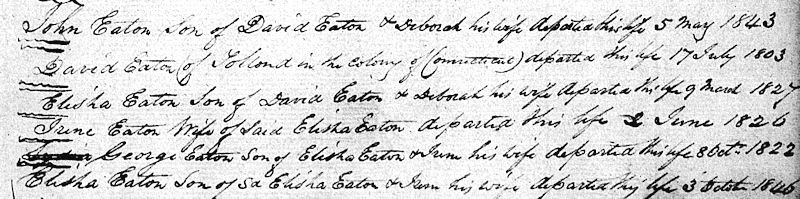 John Eaton Son of David Eaton & Deborah his wife departed this life 5 May 1843
David Eaton (of Tollond in the Colony of Connecticut) departed this life 17 July 1803
Elisha Eaton Son of David Eaton & Deborah his wife departed this life 9 March 1827
Irene Eaton Wife of Said Elisha Eaton departed this life 2 June 1826
George Eaton Son of Elisha Eaton & Irene his wife departed this life 8 Oct. 1822
Elisha Eaton Son of Sd Elisha Eaton & Irene his wife departed this life 3 October